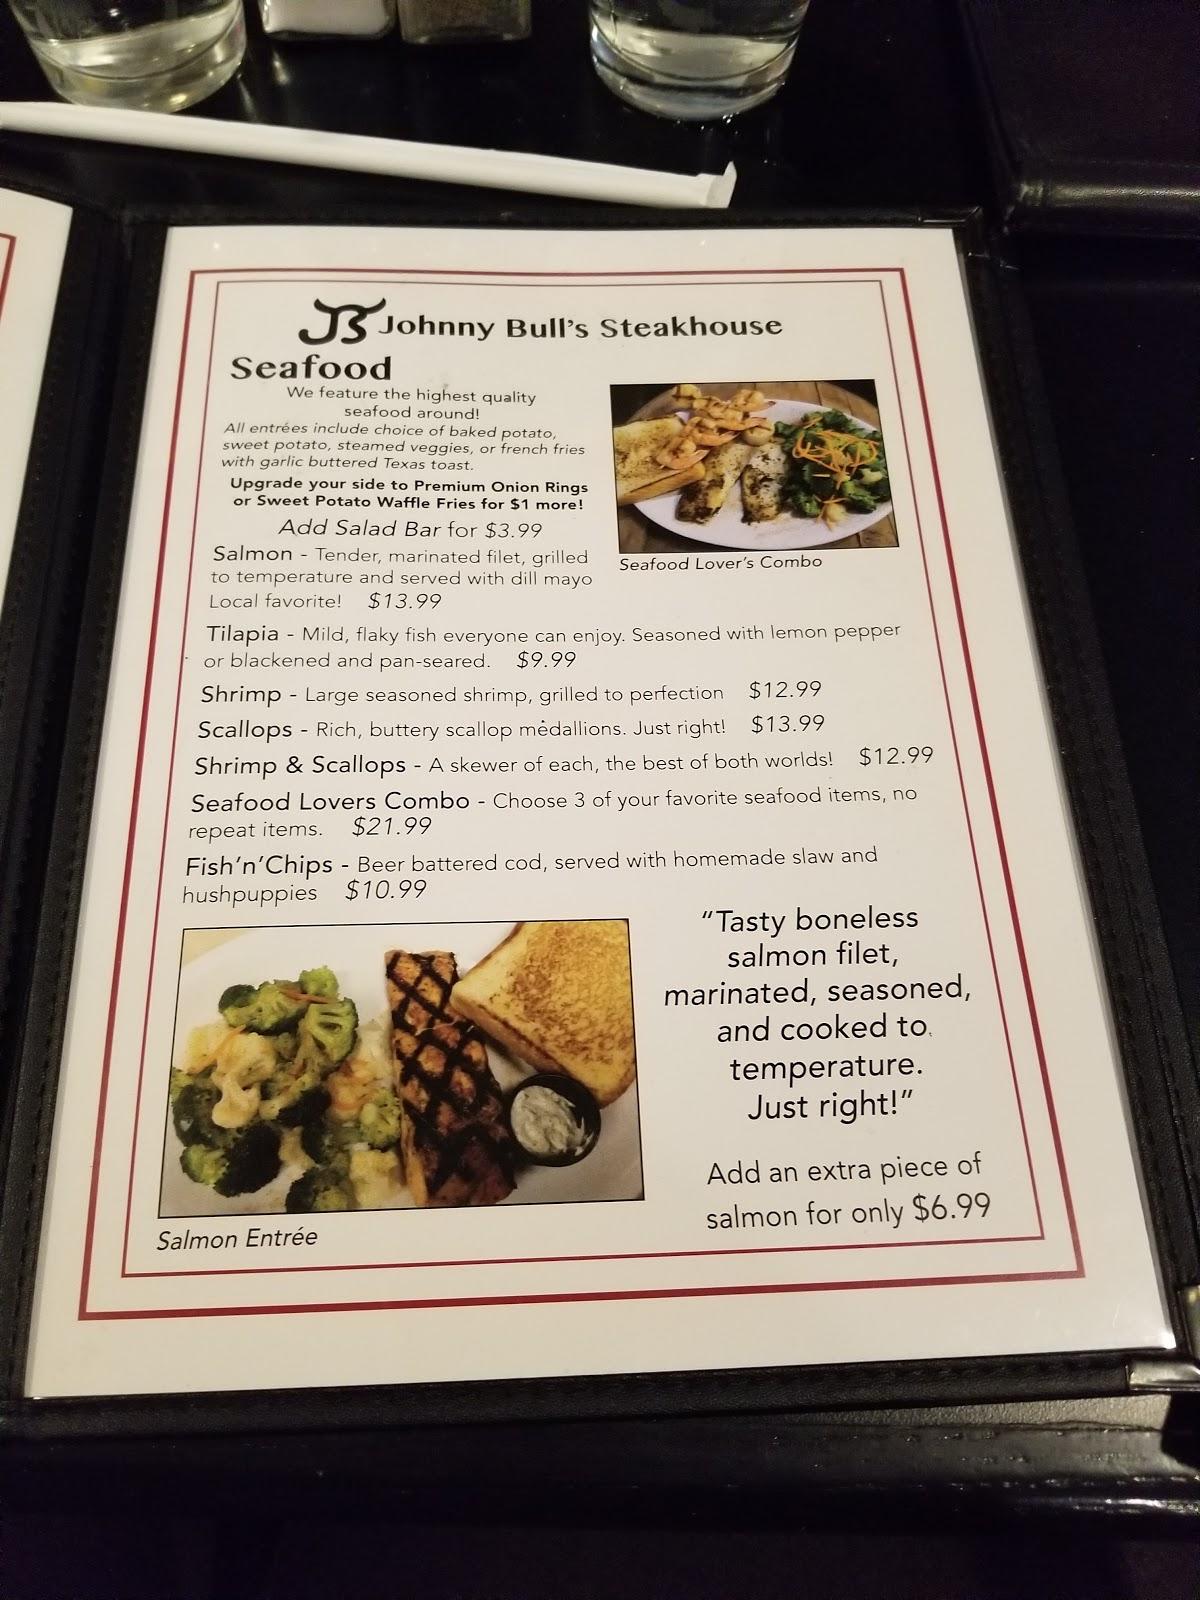 JB Johnny Bull's Steakhouse
Seafood
We feature the highest quality
seafood around!
All entrées include choice of baked potato,
sweet potato, steamed veggies, or french fries
with garlic buttered Texas toast.
Upgrade your side to Premium Onion Rings
or Sweet Potato Waffle Fries for $1 more!
Add Salad Bar for $3.99
Seafood Lover's Combo
Salmon - Tender, marinated filet, grilled
to temperature and served with dill mayo
Local favorite! $13.99
Tilapia - Mild, flaky fish everyone can enjoy. Seasoned with lemon pepper
or blackened and pan-seared. $9.99
Shrimp - Large seasoned shrimp, grilled to perfection $12.99
Scallops - Rich, buttery scallop medallions. Just right! $13.99
Shrimp & Scallops - A skewer of each, the best of both worlds! $12.99
Seafood Lovers Combo - Choose 3 of your favorite seafood items, no
repeat items. $21.99
Fish'n'Chips - Beer battered cod, served with homemade slaw and
hushpuppies $10.99
"Tasty boneless
salmon filet,
marinated, seasoned,
and cooked to
temperature.
Just right!"
Add an extra piece of
salmon for only $6.99
Salmon Entrée